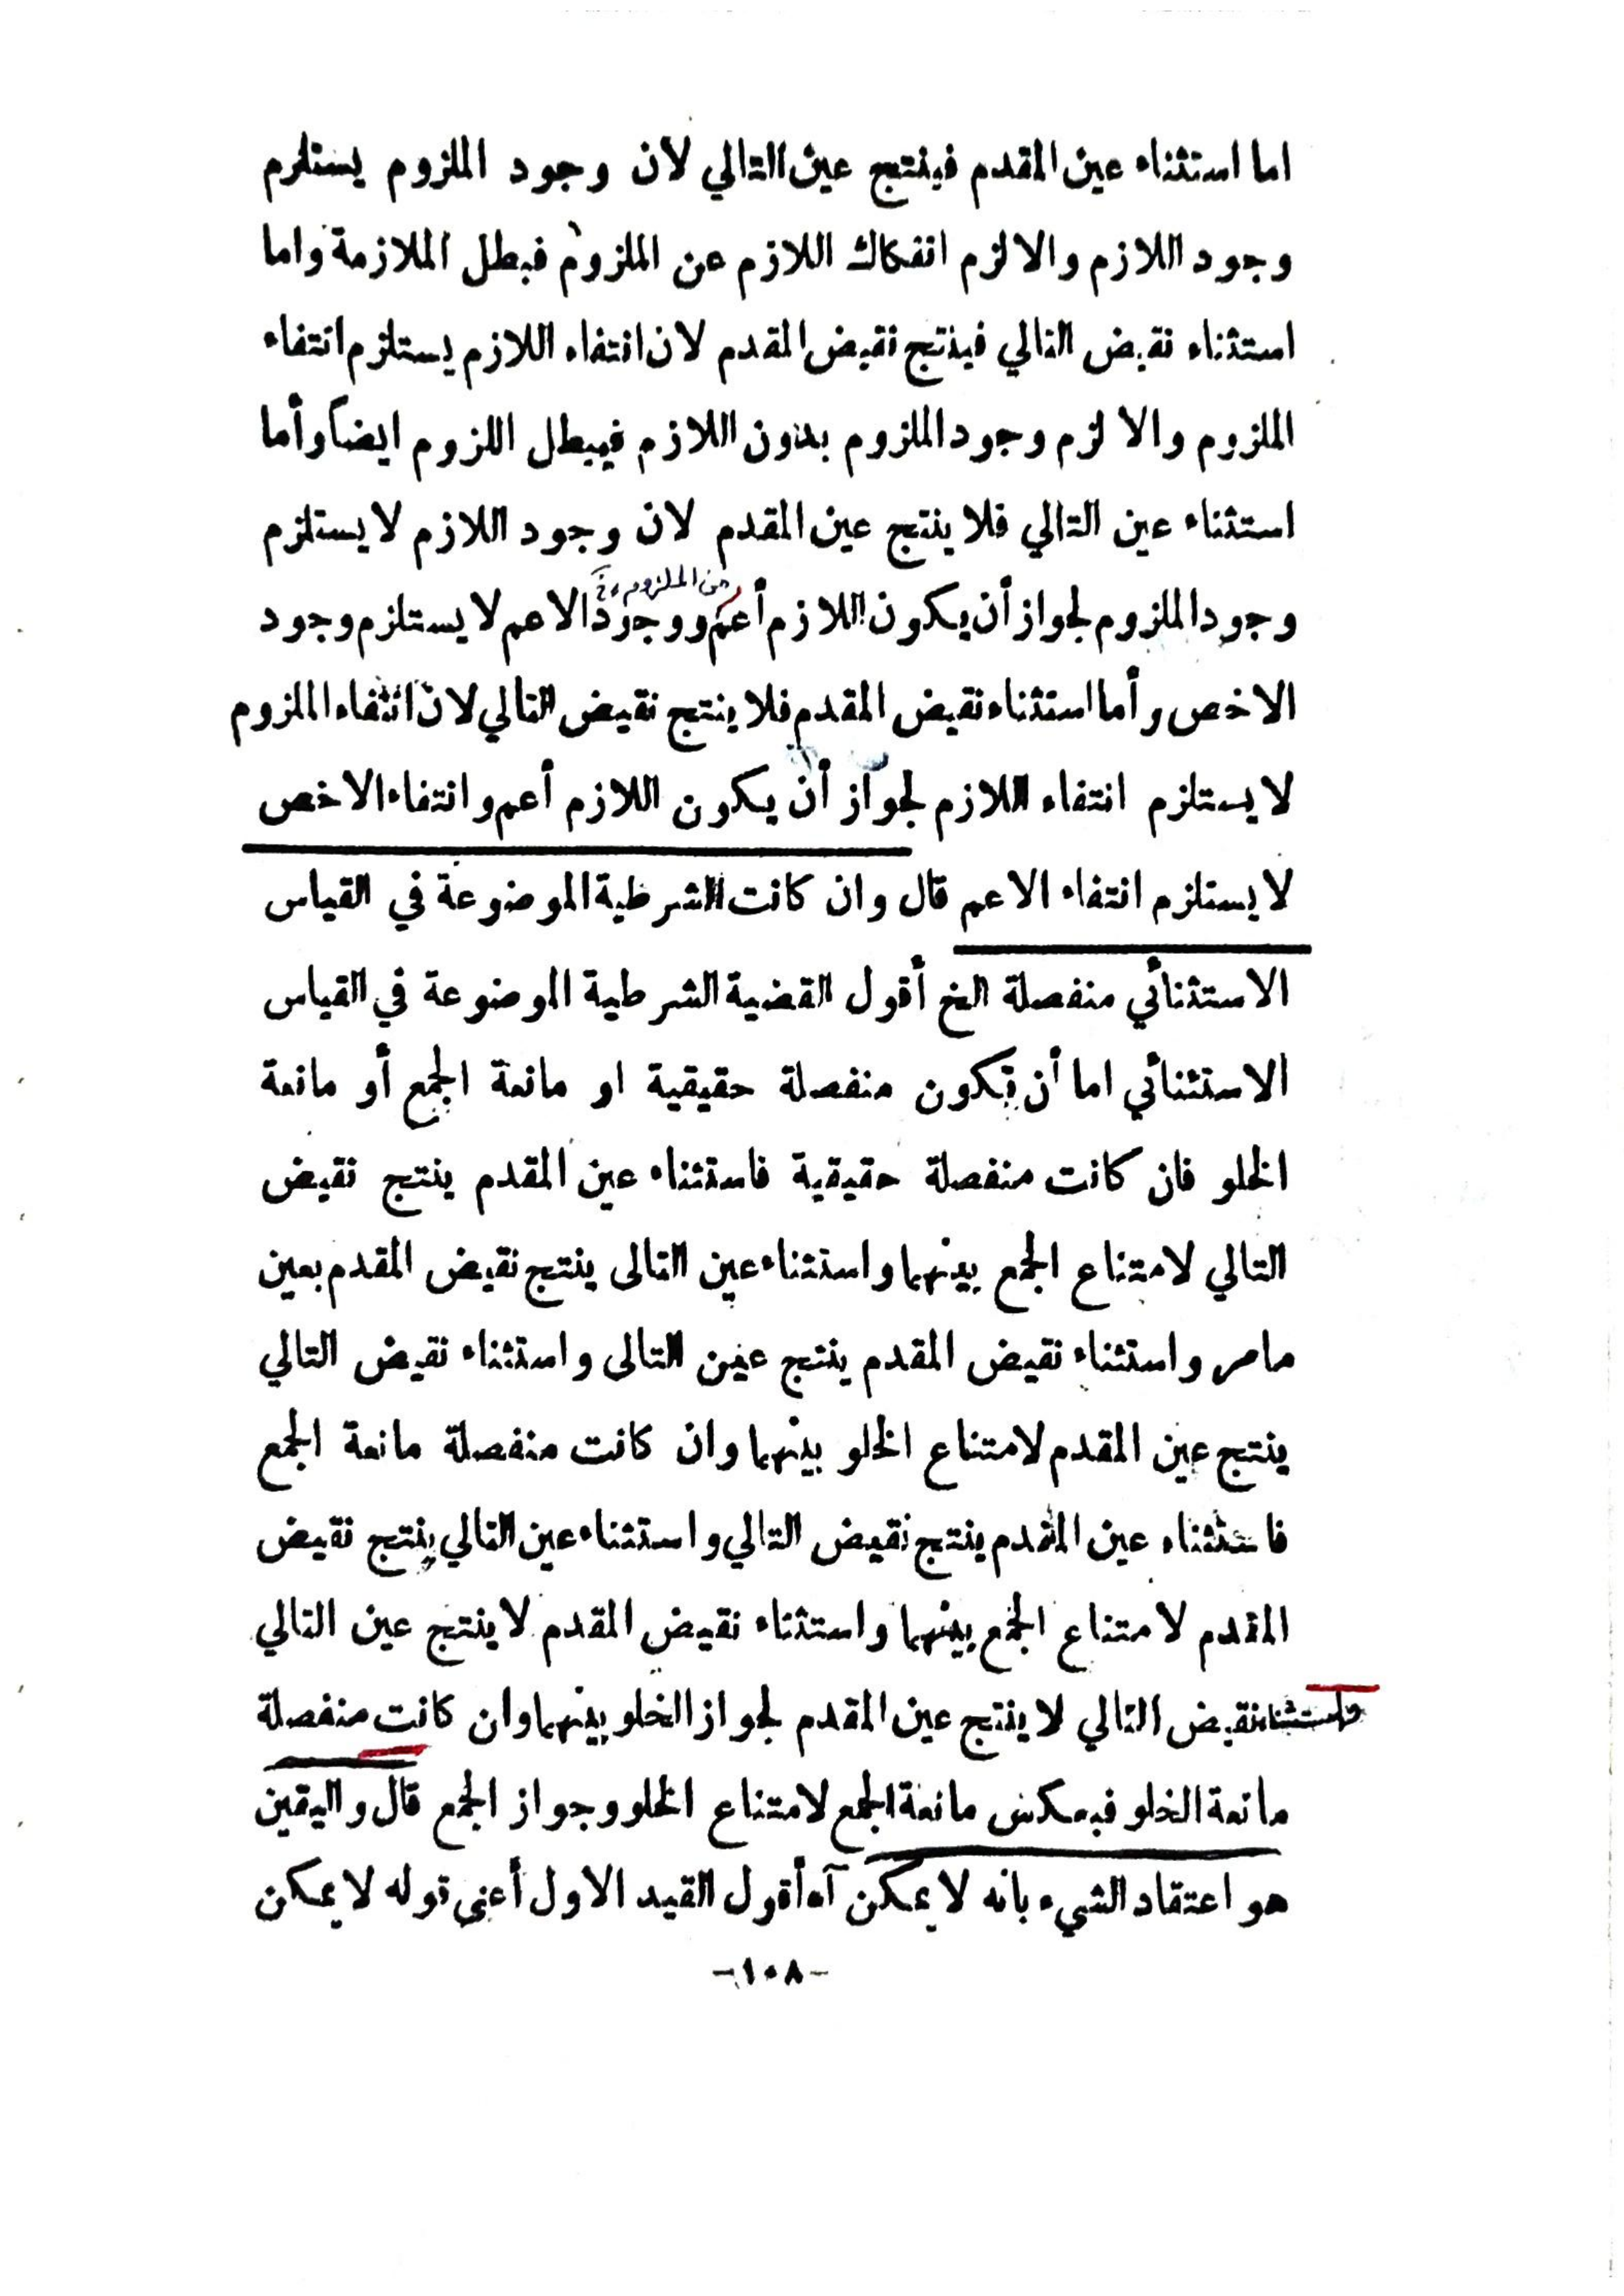 اما استثناء عين المقدم فينتج عين التالي لان وجود الملزوم يستلزم
وجود اللازم والا لزم انفكاك اللازم عن الملزوم فبطل الملازمة واما
استثناء نقيض التالي فينتج نقيض المقدم لان انتفاء اللازم يستلزم انتفاء
الملزوم والا لزم وجود الملزوم بدون اللازم فيبطل اللزوم ايضاً وأما
استثناء عين التالي فلا ينتج عين المقدم لان وجود اللازم لا يستلزم
من الملزوم
وجود الملزوم لجواز أن يكون اللازم أعم ووجود الاعم لا يستلزم وجود
الاخص وأما استثناء نقيض المقدم فلا ينتج نقيض التالي لان انتفاء الملزوم
لا يستلزم انتفاء اللازم لجواز أن يكون اللازم أعم وانتفاء الاخص
لا يستلزم انتفاء الاعم قال وان كانت الشرطية الموضوعة في القياس
الاستثنائي منفصلة الخ أقول القضية الشرطية الموضوعة في القياس
الاستثنائي اما أن تكون منفصلة حقيقية او مانعة الجمع أو مانعة
الخلو فان كانت منفصلة حقيقية فاستثناء عين المقدم ينتج نقيض
التالي لامتناع الجمع بينهما واستثناء عين التالى ينتج نقيض المقدم بعين
مامر واستثناء نقيض المقدم ينتج عين التالى واستثناء نقيض التالي
ينتج عين المقدم لامتناع الخلو بينهما وان كانت منفصلة مانعة الجمع
فاستثناء عين المقدم ينتج نقيض التالي واستثناء عين التالي ينتج نقيض
المقدم لامتناع الجمع بينهما واستثناء نقيض المقدم لا ينتج عين التالي
واستثناء نقيض التالي لا ينتج عين المقدم لجواز الخلو بينهما وان كانت منفصلة
مانعة الخلو فبعكس مانعة الجمع لامتناع الخلو وجواز الجمع قال واليقين
هو اعتقاد الشيء بانه لا يمكن آه أقول القيد الاول أعنى قوله لا يمكن
-١٠٨-